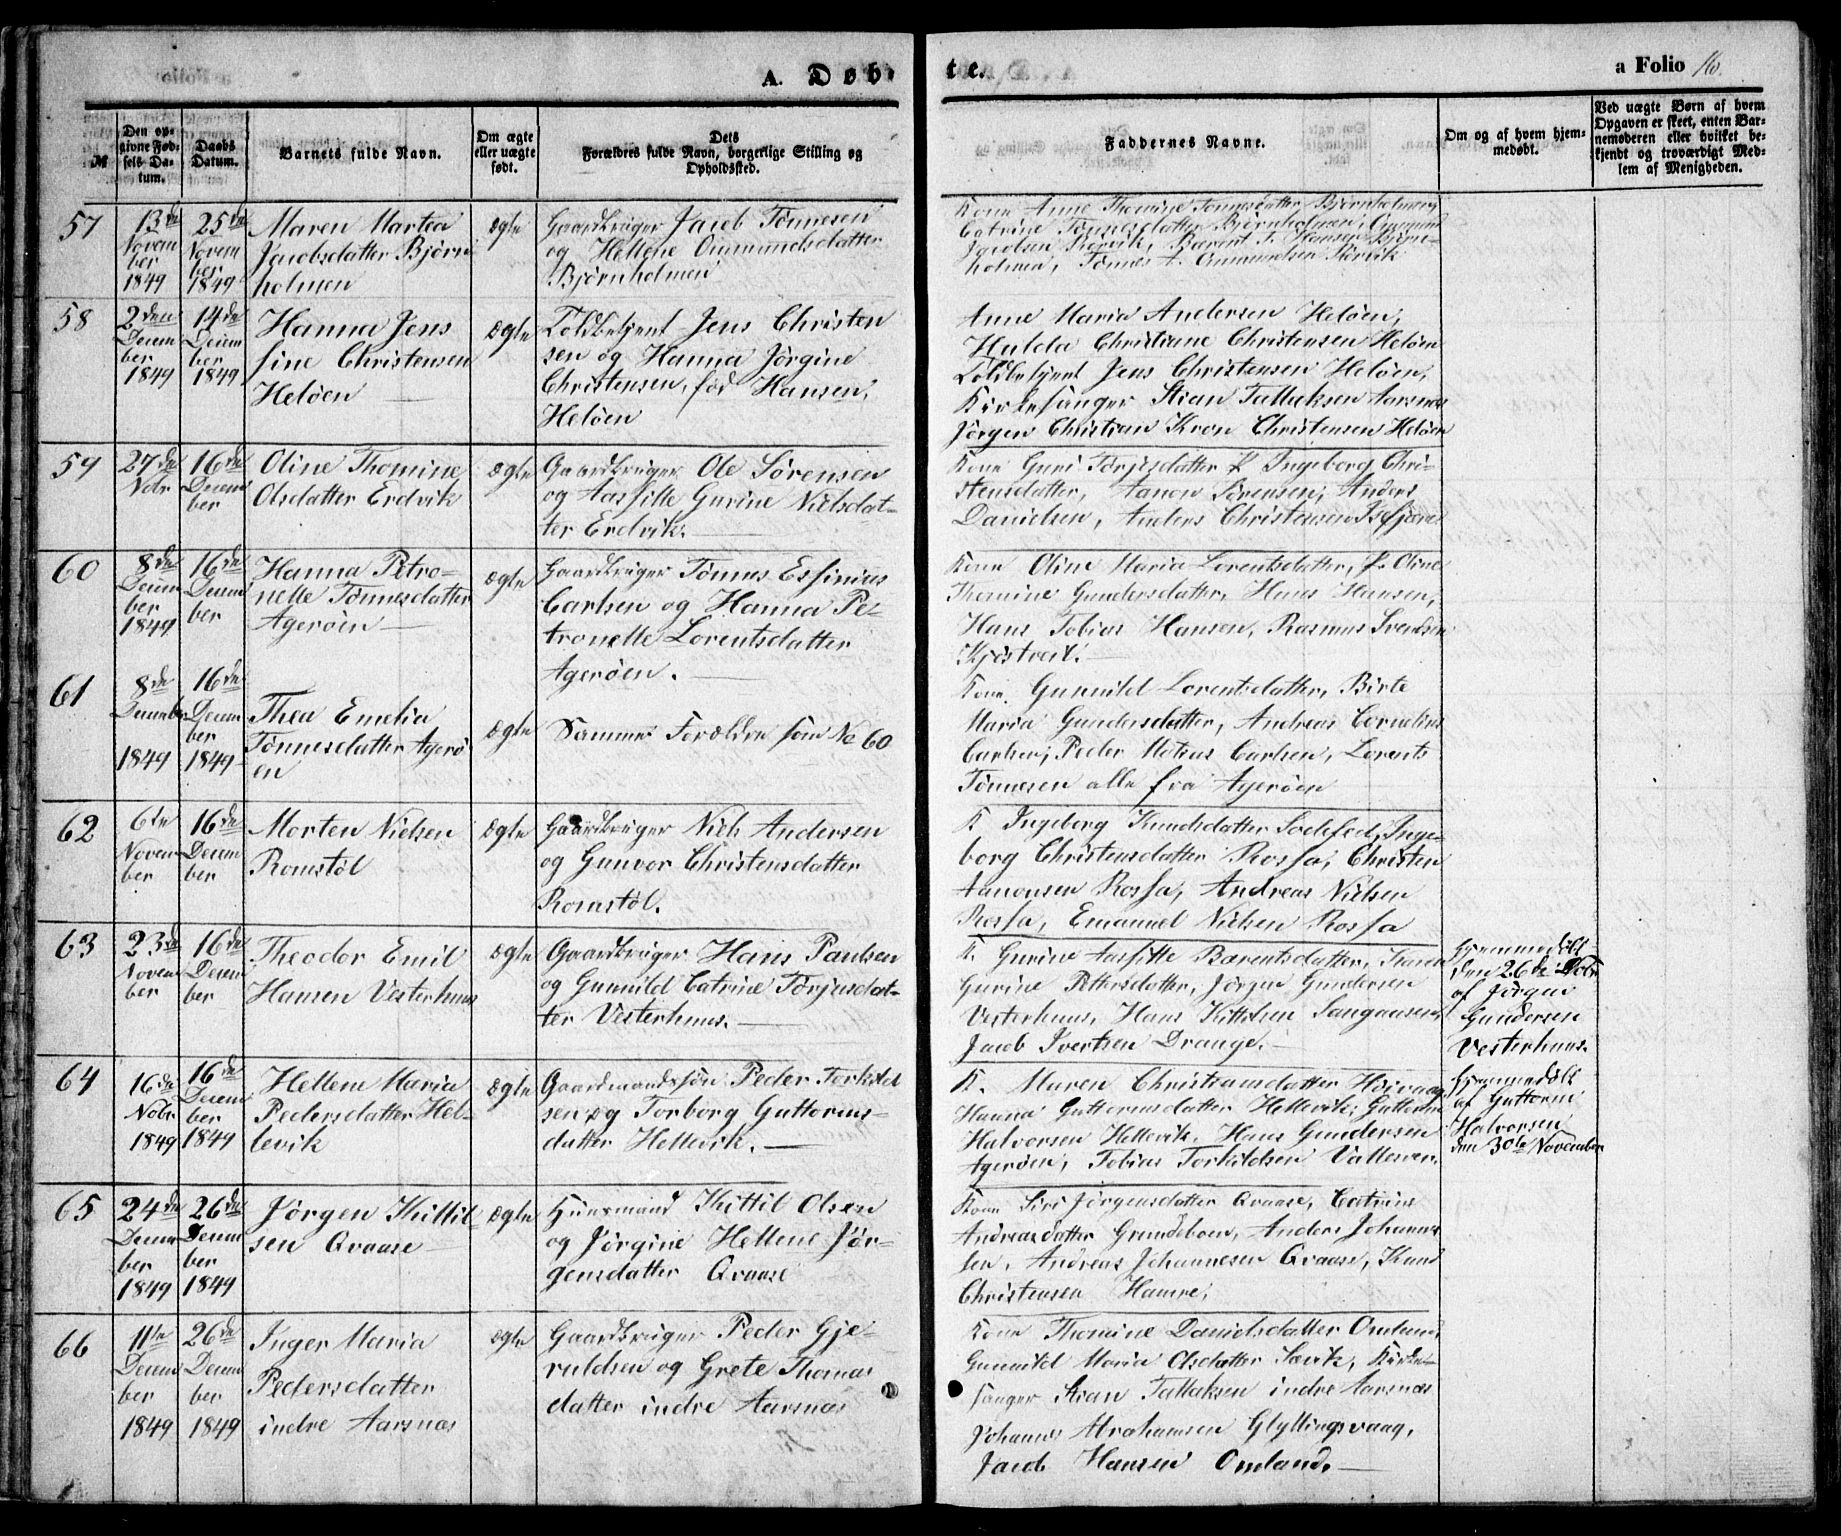 A. Døbte. a Folio 16.
№
Den opgivne Fødsels Datum.
Daabs Datum.
Barnets fulde Navn.
Om ægte eller uægte født.
Dets Forældres fulde Navn, borgerlige Stilling og Opholdssted.
Faddernes Navne.
Om og af hvem hjemmedøbt.
Ved uægte Børn af hvem Opgaven er skeet, enten Barnemoderen eller hvilket bekjendt og troværdigt Medlem af Menigheden.
57
13de November 1849
25de November 1849
Maren Martea
Jacobsdatter Bjørn
holmen
ægte
Gaardbruger Jacob Tønnesen
og Hellene Ommundsdatter
Bjørnholmen
Kone Anne Thomine Tønnesdatter Bjørnholmen,
Catrine Tønnesdatter Bjørnholmen,
Jacobsen Kjørvik, Barent T. Hansen Bjørn-
holmen, Tønnes A. Ommundsen Kjørvik
58
2den December 1849
14de December 1849
Hanna Jens
sine Christensen
Heløen
ægte
Toldbetjent Jens Christen
sen og Hanna Jørgine
Christensen, fød Hansen,
Heløen
Anne Maria Andersen Heløen,
Hulda Christiane Christensen Heløen
Toldbetjent Jens Christensen Heløen,
Kirkesanger Stian Tallaksen Aarsnæs
Jørgen Christian Kron Christensen Heløen
59
27de Nobr
16de December
Oline Thomine
Olsdatter Erdvik
ægte
Gaardbruger Ole Sørensen
og Aassille Gurine Nielsdat-
ter Erdvik.
Kone Guri Torjesdatter P. Ingeborg Chri-
stensdatter, Aanon Sørensen, Anders
Danielsen, Anders Christensen
60
8de December 1849
16de December
Hanna Petro-
nelle Tønnesdatter
Agerøen
ægte
Gaardbruger Tønnes Essinius
Carlsen og Hanna Pe-
tronelle Lorentsdatter
Agerøen.
Kone Oline Maria Lorentsdatter, P. Oline
Thomine Gundersdatter, Hans Hansen,
Hans Tobias Hansen, Rasmus Svendsen
Kjøstveit.
61
8de December 1849
16de December 1849
Thea Emelia
Tønnesdatter Agerø
en
ægte
Samme Forældre som No 60
Kone Gunnild Lorentsdatter, Birte
Maria Gundersdatter, Andreas Cornelius
Carlsen, Peder Mathias Carlsen, Lorents
Tønnesen alle fra Agerøen
62
6te November
16de December
Morten Nielsen
Romstøl
ægte
Gaardbruger Niels Andersen
og Gunvor Christensdatter
Romstøl.
K Ingeborg Knudsdatter Inge-
borg Christensdatter Rossa, Christen
Aanonsen Rossa, Andreas Nielsen
Rossa, Emanuel Nielsen Rossa
63
23de November
16de December
Theodor Emil
Hansen Vesterhuus
ægte
Gaardbruger Hans Paulsen
og Gunnild Catrine Torjusdat-
ter Vesterhuus.
K. Gurine Aassille Barentsdatter, Karen
Gurine Pettersdatter, Jørgen Gundersen
Vesterhuus, Hans Kittelsen Sangaasen,
Jacob Ivertsen Drange.
Hjemmedøbt
den 26de Nobr
af Jørgen
Gundersen
Vesterhuus.
64
16de Nobr 1849
16de December 1849
Hellene Maria
Pedersdatter Hel-
levik
ægte
Gaardmandssøn Peder Torkild
sen og Torborg Guttorms-
datter Hellevik.
K. Maren Christiansdatter Høivaag
Hanna Guttormsdatter Hellevik, Guttorm
Halvorsen Hellevik, Hans Gundersen
Agerøen, Tobias Torkildsen Vallesvær.
Hjemmedøbt
af Guttorm
Halvorsen
den 30te November
65
24de December 1849
26de December 1849
Jørgen Kittil
sen Qvaase
ægte
Huusmand Kittil Olsen
og Jørgine Hellene Jør-
gensdatter Qvaase
Kone Siri Jørgensdatter Qvaase, Catrine
Andreasdatter Grundeboen, Anders Johannes
sen, Andreas Johannesen Qvaase, Knud
Christensen Hamre,
66
11te December 1849
26de December 1849
Inger Maria
Pedersdatter
indre Aarsnæs
ægte
Gaardbruger Peder Gje-
ruldsen og Grete Thomas
datter indre Aarsnæs
Kone Thomine Danielsdatter Omland,
Gunnild Maria Olsdatter Sævik, Kirke-
sanger Stian Tallaksen indre Aarsnæs
Johannes Abrahamsen Glyttingsvaag,
Jacob Hansen Omland.